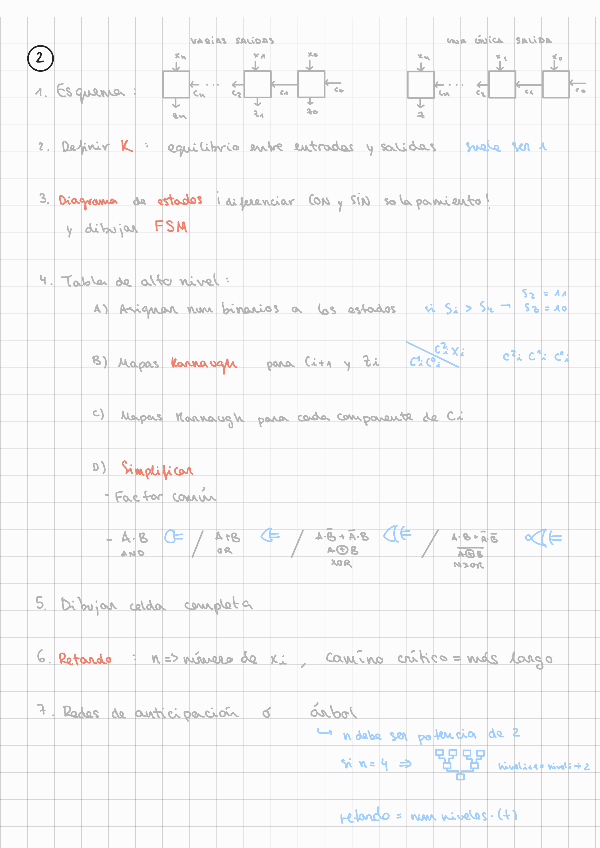 2
VARIAS SALIDAS
UNA ÚNICA SALIDA
xn x1 x0
xn x1 x0
1. Esquema :
cn ... c2 c1 c0
cn ... c2 c1 c0
zn z1 z0
z
2. Definir K : equilibrio entre entradas y salidas suele ser 1
3. Diagrama de estados ¡diferenciar CON y SIN solapamiento!
y dibujar FSM
4. Tablas de alto nivel :
A) Asignar num binarios a los estados si Si > S4 → S2 = 11
S3 = 10
B) Mapas Karnaugh para Ci+1 y Zi C²i Xi
C¹i C⁰i
C²i C¹i C⁰i
C) Mapas Karnaugh para cada componente de Ci
D) Simplificar
- Factor común
- A·B / A+B / A·B̅ + A̅·B / A·B + A̅·B̅
AND OR A⊕B
XOR
A⊕B
NXOR
5. Dibujar celda completa
6. Retardo : n => número de xi , camino crítico = más largo
7. Redes de anticipación o árbol
↳ n debe ser potencia de 2
si n = 4 ⇒
retardo = num niveles · (t)